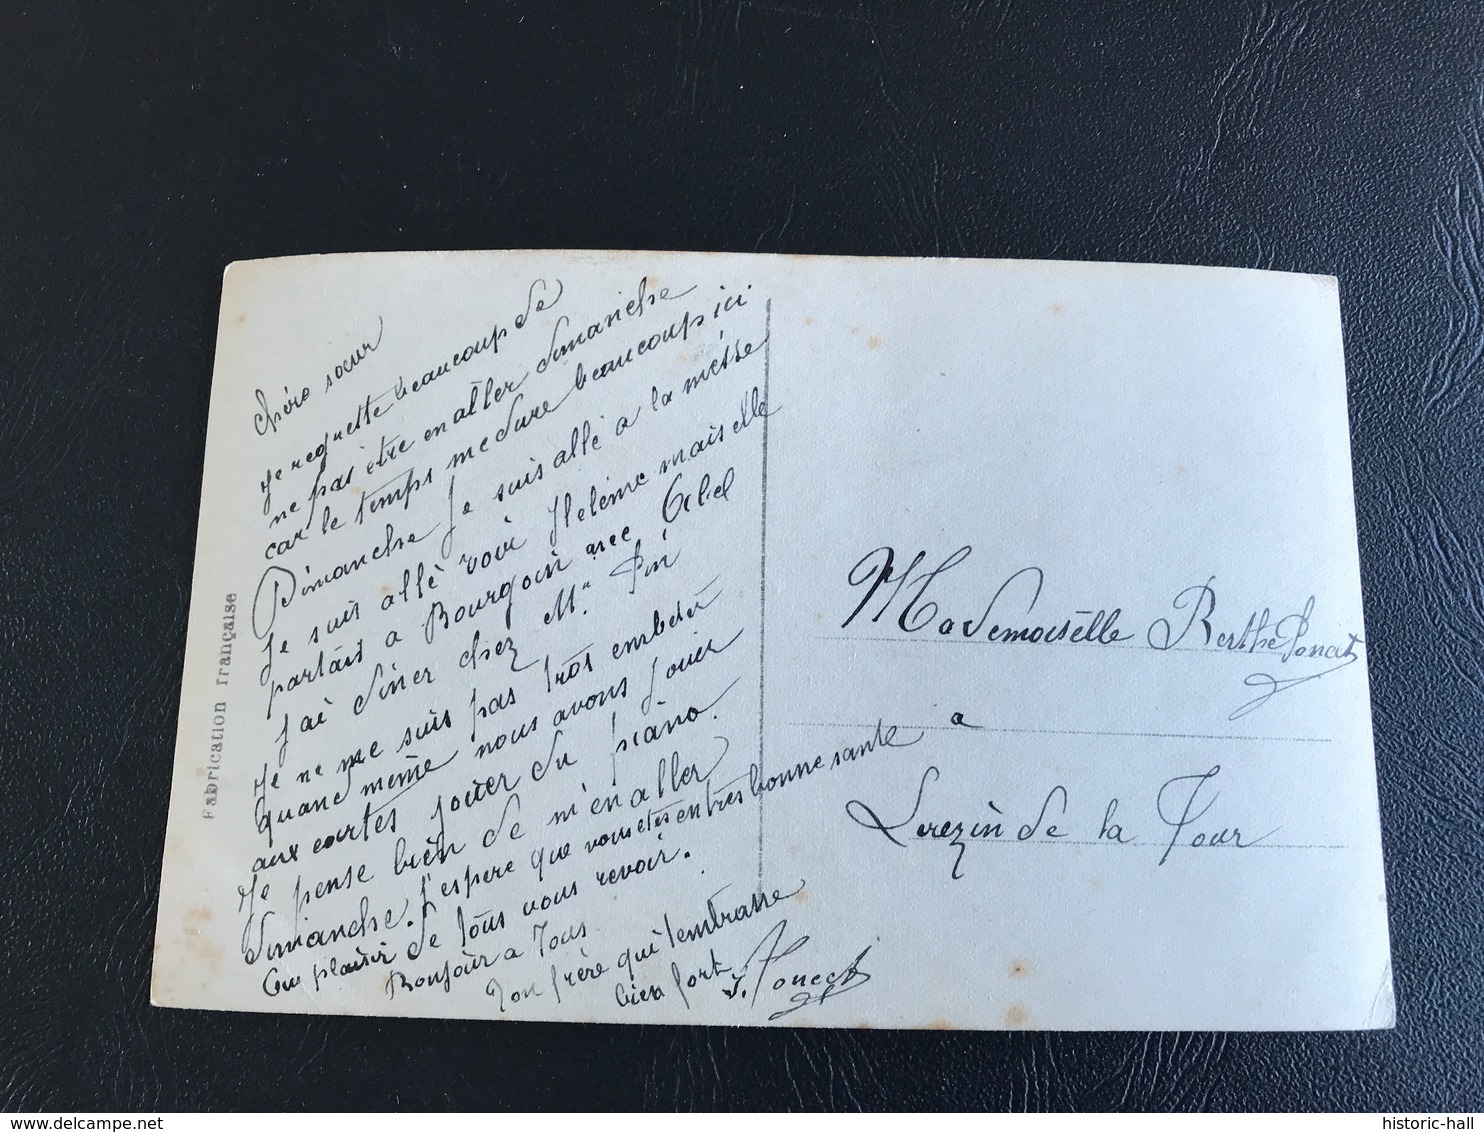 Chère sœur
Je regrette beaucoup de
ne pas être en aller dimanche
car le temps me dure beaucoup ici.
Dimanche Je suis allé a la messe
Je suis allé voir Hélène mais elle
partais a Bourgoin avec Abel
J'ai diner chez Mr Pin
Je ne me suis pas trot embeté
quand même nous avons jouer
aux cartes jouer du piano.
Je pense bien de m'en aller
dimanche. J'espere que vous etes en tres bonne sante
Au plaisir de tous vous revoir.
Bonjour a Tous
Ton frère qui t'embrasse
bien fort
J. Poncet
Fabrication française
Mademoiselle Berthe Poncet
a
Cerezin de la Tour
historic-hall